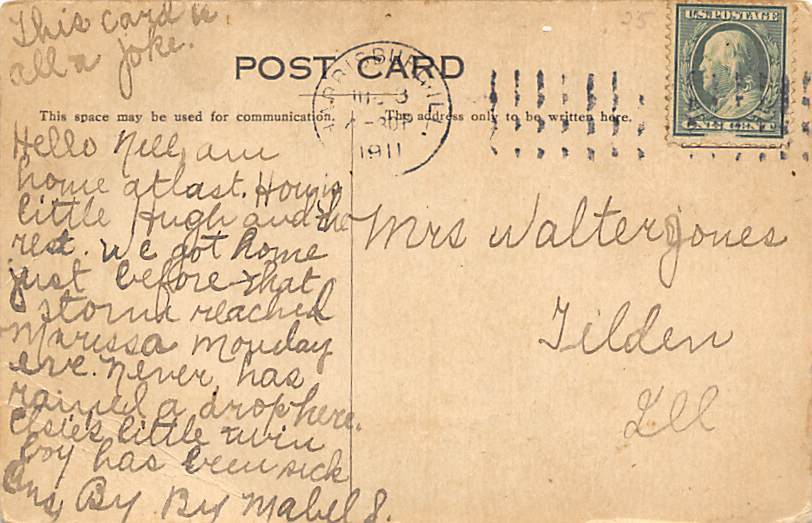 This card is
all a joke.
25
U.S. POSTAGE
ONE CENT
POST CARD
HARRISBURG ILL
3
-30P
1911
This space may be used for communication.
The address only to be written here.
Hello Nell, am
home at last. How is
little Hugh and the
rest. We got home
just before that
storm reached
Marissa Monday
eve. Never has
rained a drop here.
Elsie's little twin
boy has been sick
Ans By By Mabel S.
Mrs Walter Jones
Tilden
Ill